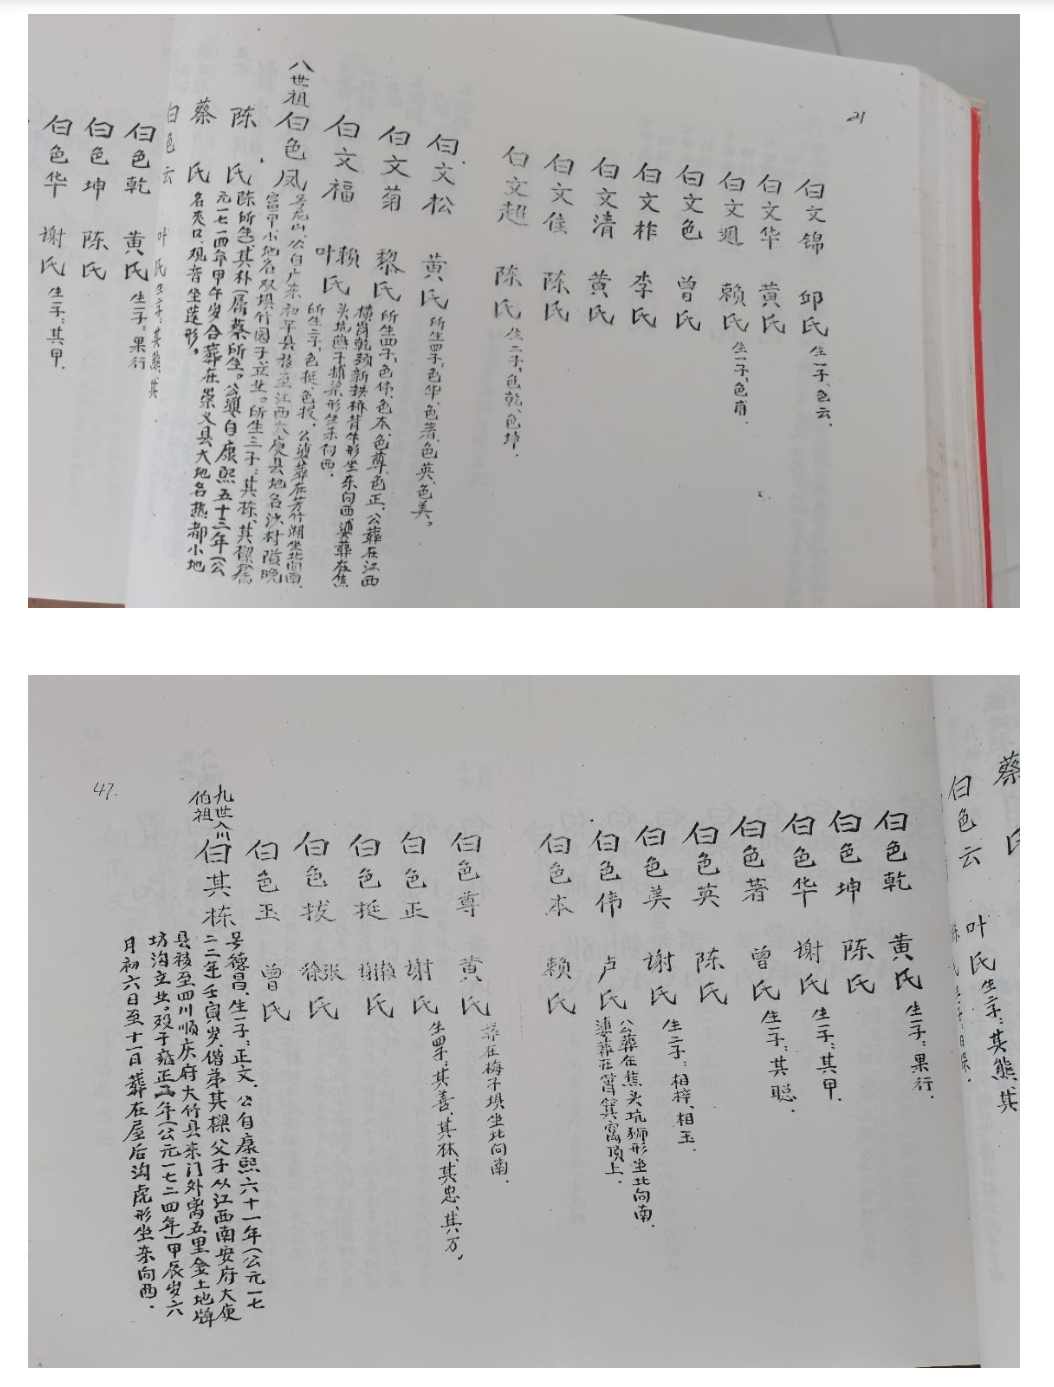 21
白文锦 邱氏 生一子:色云.
白文华 黄氏
白文週 赖氏 生一子,色育.
白文色 曾氏
白文柞 李氏
白文清 黄氏
白文佳 陈氏
白文超 陈氏 生二子,色乾、色坤.
白文松 黄氏 所生四子,色华、色著、色英、色美。
白文菊 黎氏 所生四子,色伟、色本、色尊、色正,公葬在江西
横岗乾颈新拱桥背牛形坐东向西婆葬在焦
头坑燕子捕梁形坐东向西.
白文福 赖叶氏 所生二子,色挺、色拔,公婆葬在芳竹湖坐北向南.
八世祖
白色凤 公自广东和平县移至江西大庾县地名沙村隘晚
富甲小地名双坝竹园子立业。所生三子:其栋、其樑
陈氏 陈所生,其朴(属蔡所生。公婆自康熙五十三年(公
元一七一四年甲午岁合葬在崇义县大地名热都小地
蔡氏 名夹口,观音坐莲形。
白色云 叶氏 生二子:其熊、其
白色乾 黄氏 生一子:果行
白色坤 陈氏
白色华 谢氏 生一子:其甲.
蔡氏
白色云 叶氏 生二子:其熊、其
白色乾 黄氏 生一子:果行.
白色坤 陈氏
白色华 谢氏 生一子:其甲.
白色著 曾氏 生一子:其聪.
白色英 陈氏
白色美 谢氏 生二子:相梓、相玉.
白色伟 卢氏 公葬在焦头坑狮形坐北向南.
婆葬在箕窝顶上.
白色本 赖氏
白色尊 黄氏 葬在梅子坝坐北向南.
白色正 谢氏 生四子:其善、其林、其忠、其万,
白色挺 赖谢氏
白色拔 张徐氏
白色玉 曾氏
九世入川
伯祖
白其栋 号德昌、生一子:正文、公自康熙六十一年(公元一七
二二年壬寅岁,偕弟其樑父子从江西南安府大庾
县移至四川顺庆府大竹县东门外离五里金土地牌
坊沟立业。殁于雍正二年(公元一七二四年)甲辰岁六
月初六日至十一日葬在屋后沟虎形坐东向西.
47.